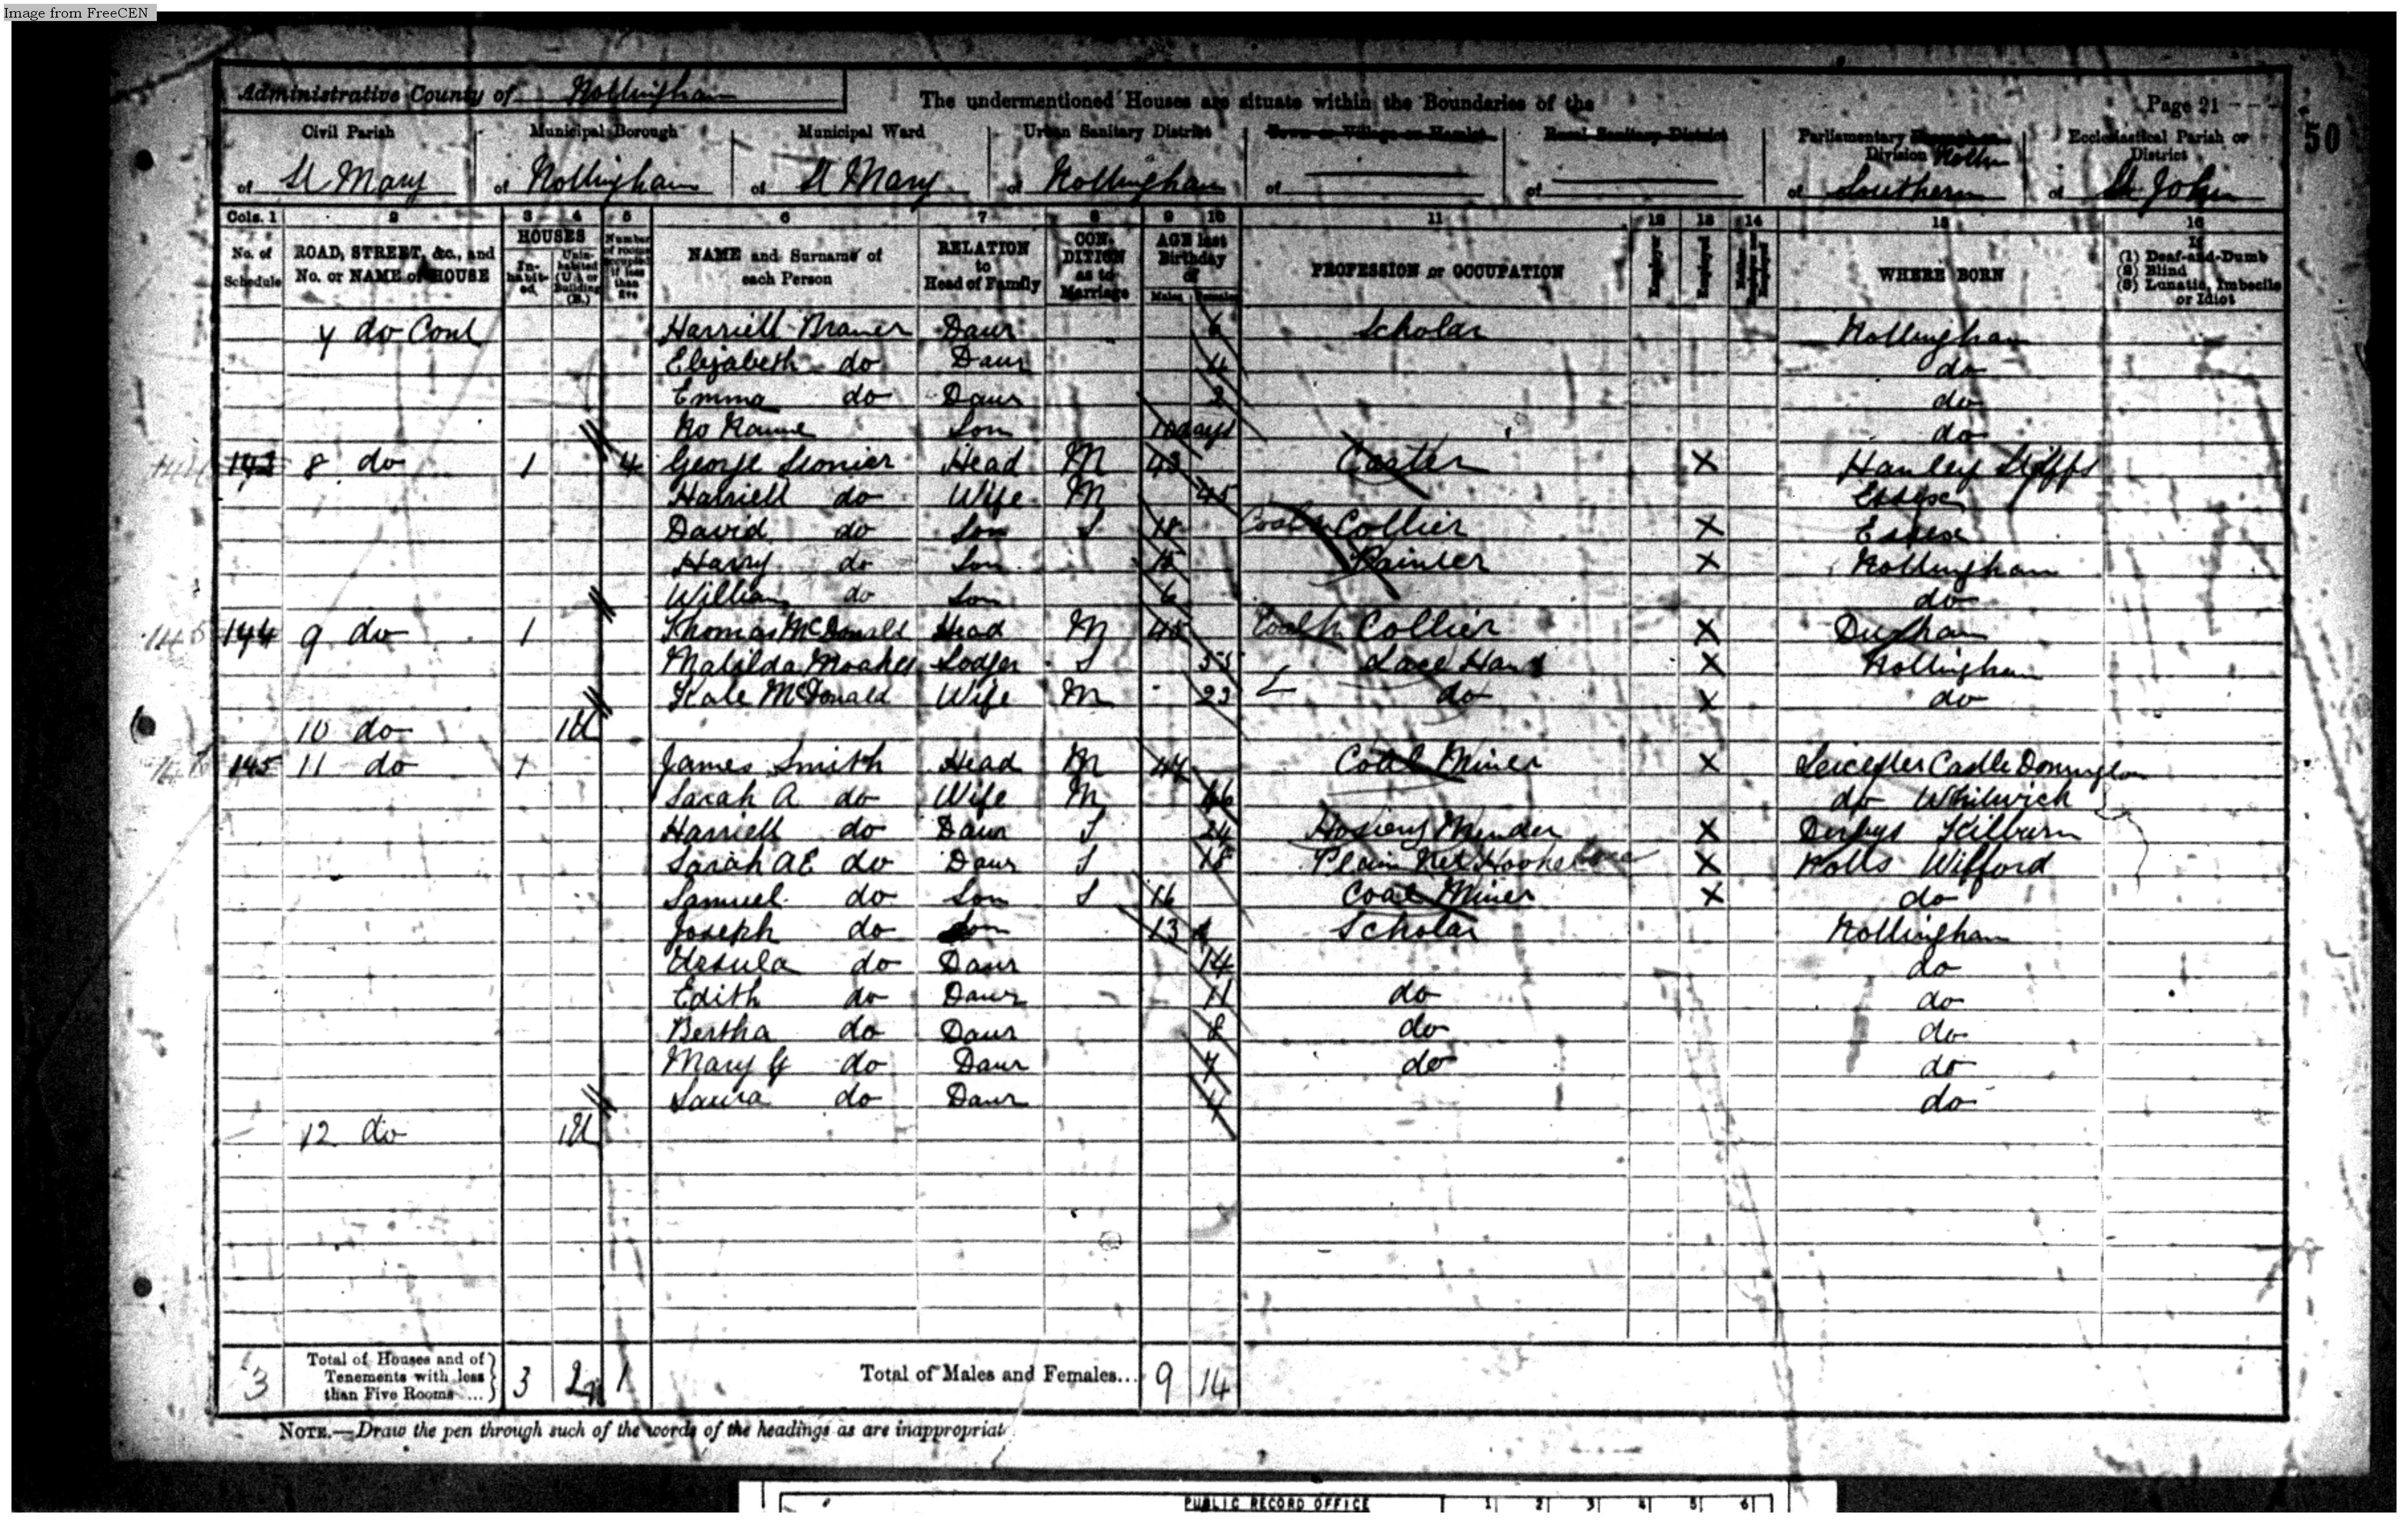 Image from FreeCEN
Administrative County of Nottingham
The undermentioned Houses are situate within the Boundaries of the
Page 21
50
Civil Parish Municipal Borough Municipal Ward Urban Sanitary District Town or Village or Hamlet Rural Sanitary District Parliamentary Division Ecclesiastical Parish or District
of St Mary of Nottingham of St Mary of Nottingham of of of Southern of St John
Cols. 1 2 3 4 5 6 7 8 9 10 11 12 13 14 15 16
No. of Schedule ROAD, STREET, &c., and No. or NAME of HOUSE HOUSES In-habit-ed Unin-habited (U.) or Building (B.) Number of rooms occupied if less than five NAME and Surname of each Person RELATION to Head of Family CON-DITION as to Marriage AGE last Birthday of Males Females PROFESSION or OCCUPATION Employer Employed Neither Employer nor Employed WHERE BORN If (1) Deaf-and-Dumb (2) Blind (3) Lunatic, Imbecile or Idiot
7 do Cont Harriett Daur 6 Scholar Nottingham
Elizabeth do Daur 4 do
Emma do Daur 2 do
No Name Son 10 days do
143 8 do 1 4 George Head M 43 X Hanley Staffs
Harriett do Wife M 45 Essex
David do Son S 18 Coal Collier X Essex
Harry do Son X Nottingham
William do Son 6 do
144 9 do 1 Thomas McDonald Head M 40 Coal Collier X Durham
Matilda Moakes Lodger S 55 Lace Hand X Nottingham
Kate McDonald Wife M 23 do X do
10 do 1U
145 11 do 1 James Smith Head M 44 Coal Miner X Leicester Castle Donington
Sarah A do Wife M do Whitwick
Harriett do Daur S 24 Hosiery Mender X Derbys Kilburn
Sarah AE do Daur S 18 Plain Net X Notts Wilford
Samuel do Son S 16 Coal Miner X do
Joseph do Son 13 Scholar Nottingham
Ursula do Daur 14 do
Edith do Daur 11 do do
Bertha do Daur 8 do do
Mary G do Daur 7 do do
Laura do Daur 4 do
12 do 1U
3 Total of Houses and of Tenements with less than Five Rooms ... 3 2 1 Total of Males and Females... 9 14
NOTE.—Draw the pen through such of the words of the headings as are inappropriat
PUBLIC RECORD OFFICE 1 2 3 4 5 6